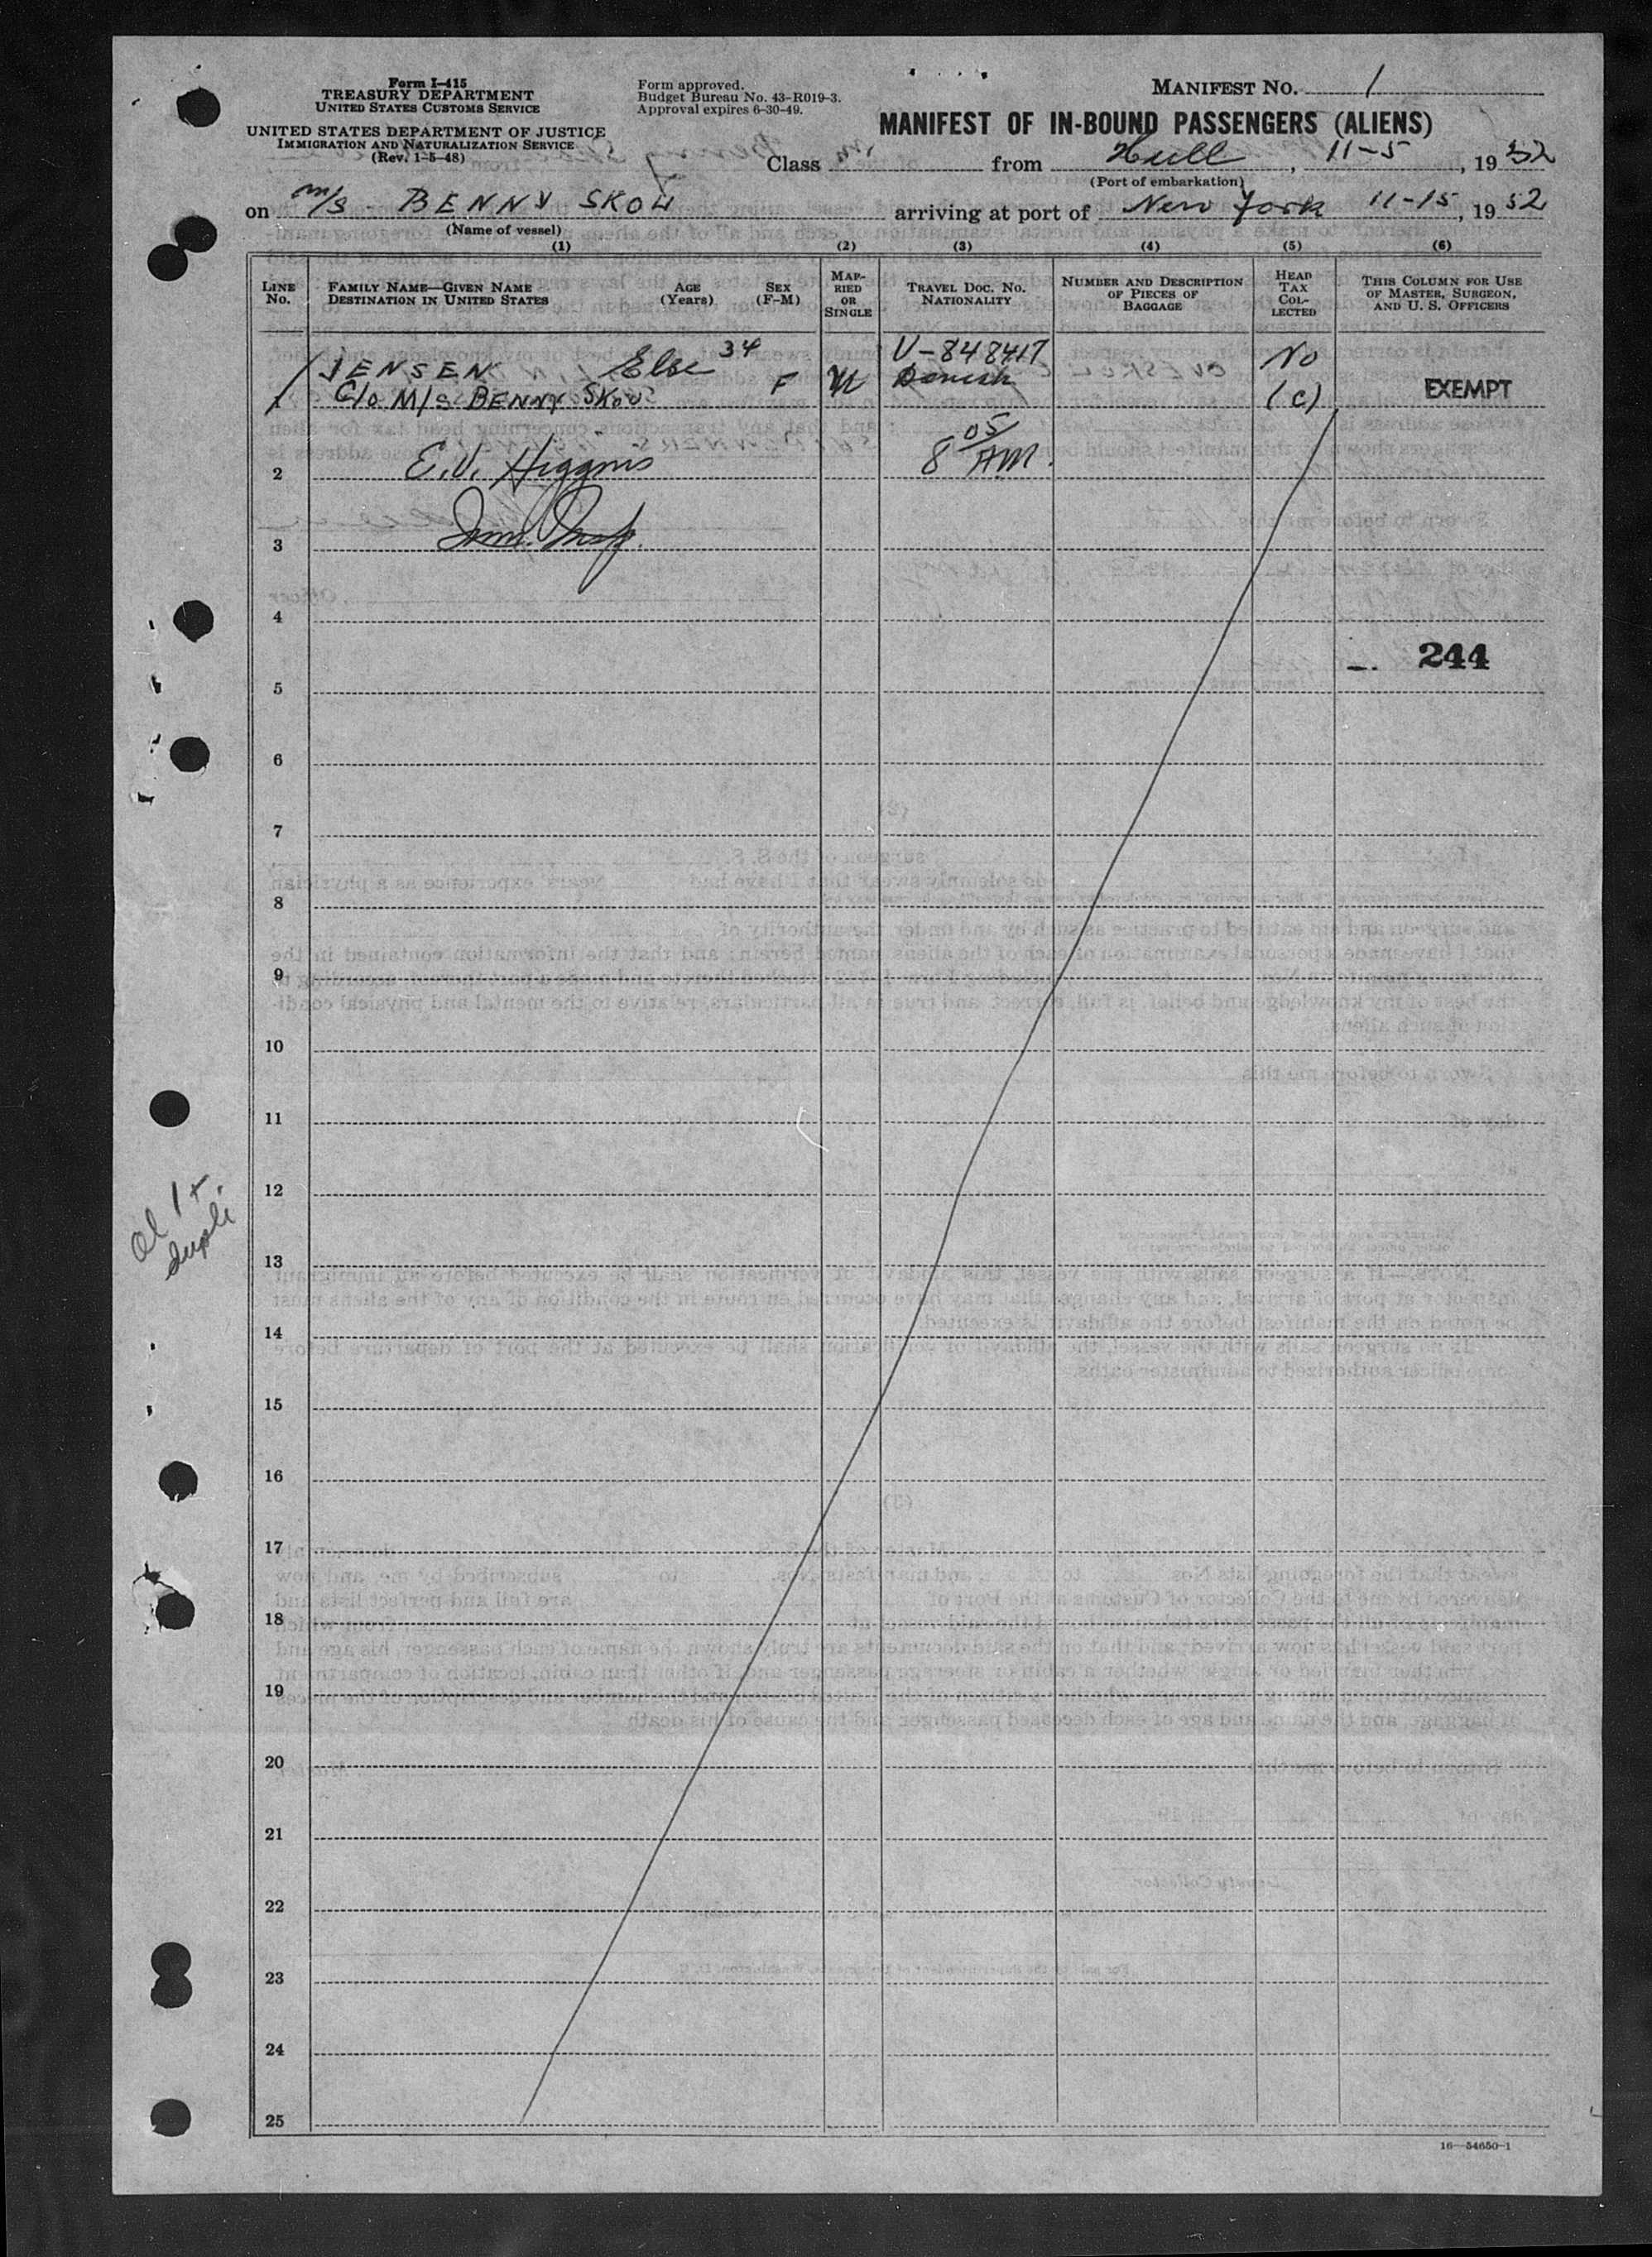 Form I-415
TREASURY DEPARTMENT
UNITED STATES CUSTOMS SERVICE
UNITED STATES DEPARTMENT OF JUSTICE
IMMIGRATION AND NATURALIZATION SERVICE
(Rev. 1-5-48)
Form approved.
Budget Bureau No. 43-R019-3.
Approval expires 6-30-49.
MANIFEST NO. 1
MANIFEST OF IN-BOUND PASSENGERS (ALIENS)
Class from Hull, 11-5, 1952
(Port of embarkation)
on M/S BENNY SKOU arriving at port of New York 11-15, 1952
(Name of vessel)
(1) (2) (3) (4) (5) (6)
LINE NO.
FAMILY NAME—GIVEN NAME
DESTINATION IN UNITED STATES
AGE (Years)
SEX (F-M)
MARRIED OR SINGLE
TRAVEL DOC. NO.
NATIONALITY
NUMBER AND DESCRIPTION OF PIECES OF BAGGAGE
HEAD TAX COLLECTED
THIS COLUMN FOR USE OF MASTER, SURGEON, AND U. S. OFFICERS
JENSEN Else 34 V-848417 No
1 C/o M/S BENNY SKOU F M Danish (C) EXEMPT
2 E.V. Higgins 8 05 AM.
3 Imm. Insp.
4
244
5
6
7
8
9
10
11
al 1 +
dupli.
12
13
14
15
16
17
18
19
20
21
22
23
24
25
16—54650-1